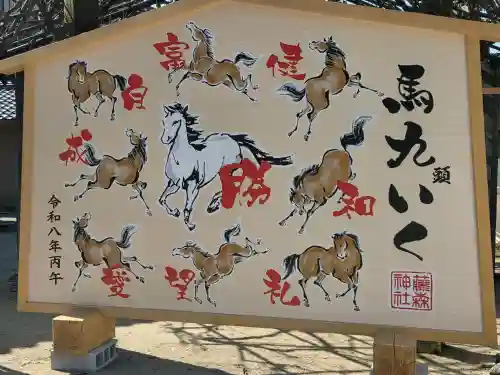 馬九頭いく
富
健
自
成
勝
和
愛
望
礼
令和八年丙午
藤森
神社